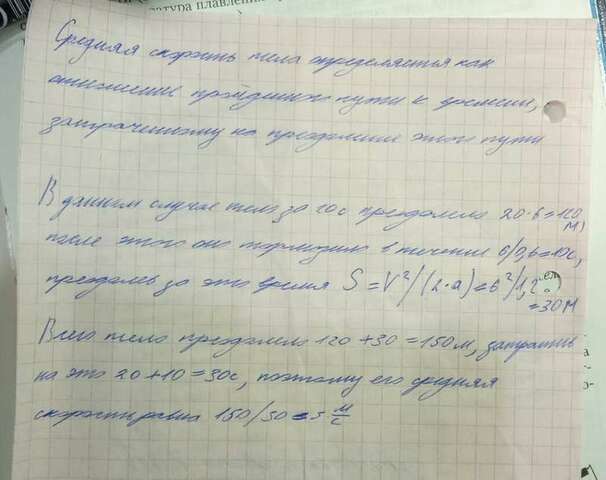 атура плавлен
Средняя скорость тела определяется как
отношение пройденного пути к времени,
затраченному на преодоление этого пути
В данном случае тело за 20с преодолело 20·6=120
м,
после этого оно тормозило в течении 6/0,6=10с,
преодолев за это время S=V²/(2·a)=6²/1,2
=30м
Всего тело преодолело 120+30=150м, затратив
на это 20+10=30с, поэтому его средняя
скорость равна 150/30=5 м/с